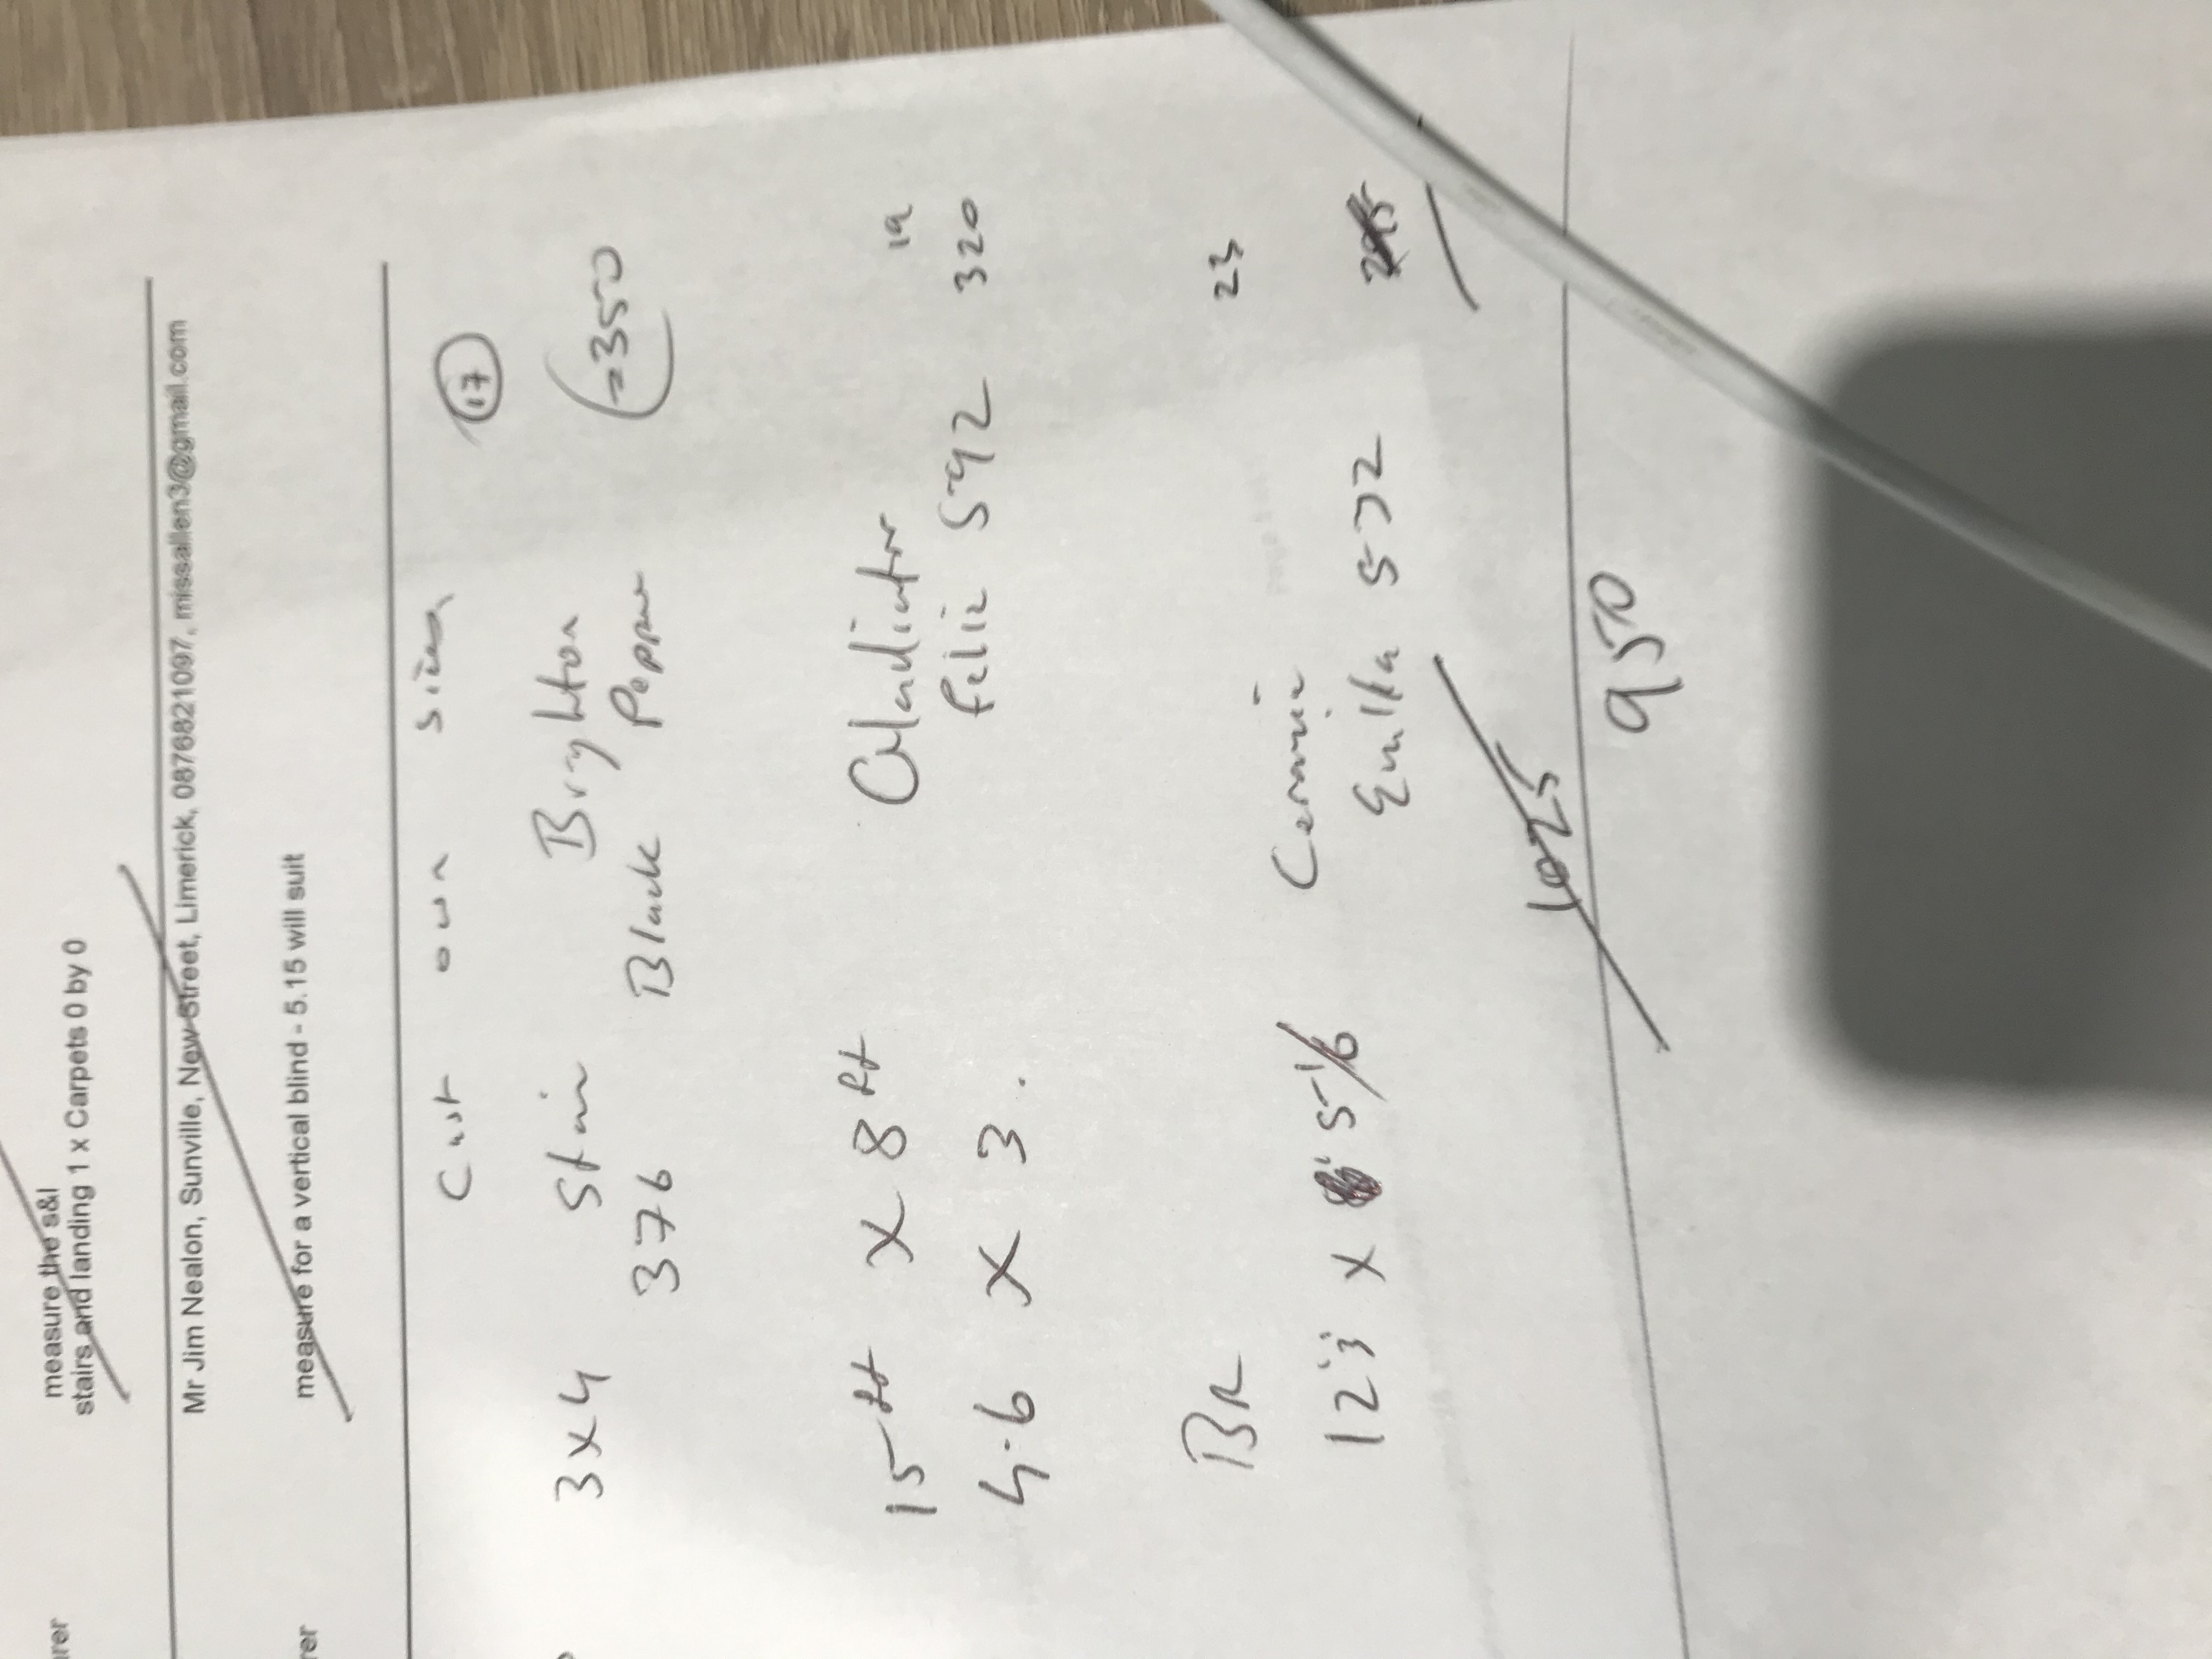 measure the s&l
stairs and landing 1 x Carpets 0 by 0
Mr Jim Nealon, Sunville, New Street, Limerick, 0876821097, missallen3@gmail.com
measure for a vertical blind - 5.15 will suit
Cust own sizes
17
3x4 Stair Brighton
376 Black Pepper = 350
15ft x 8ft Gladiator 19
4.6 x 3. Felix 592 320
BR 23
Ceramic
12'3 x 5'6 572
1025
950